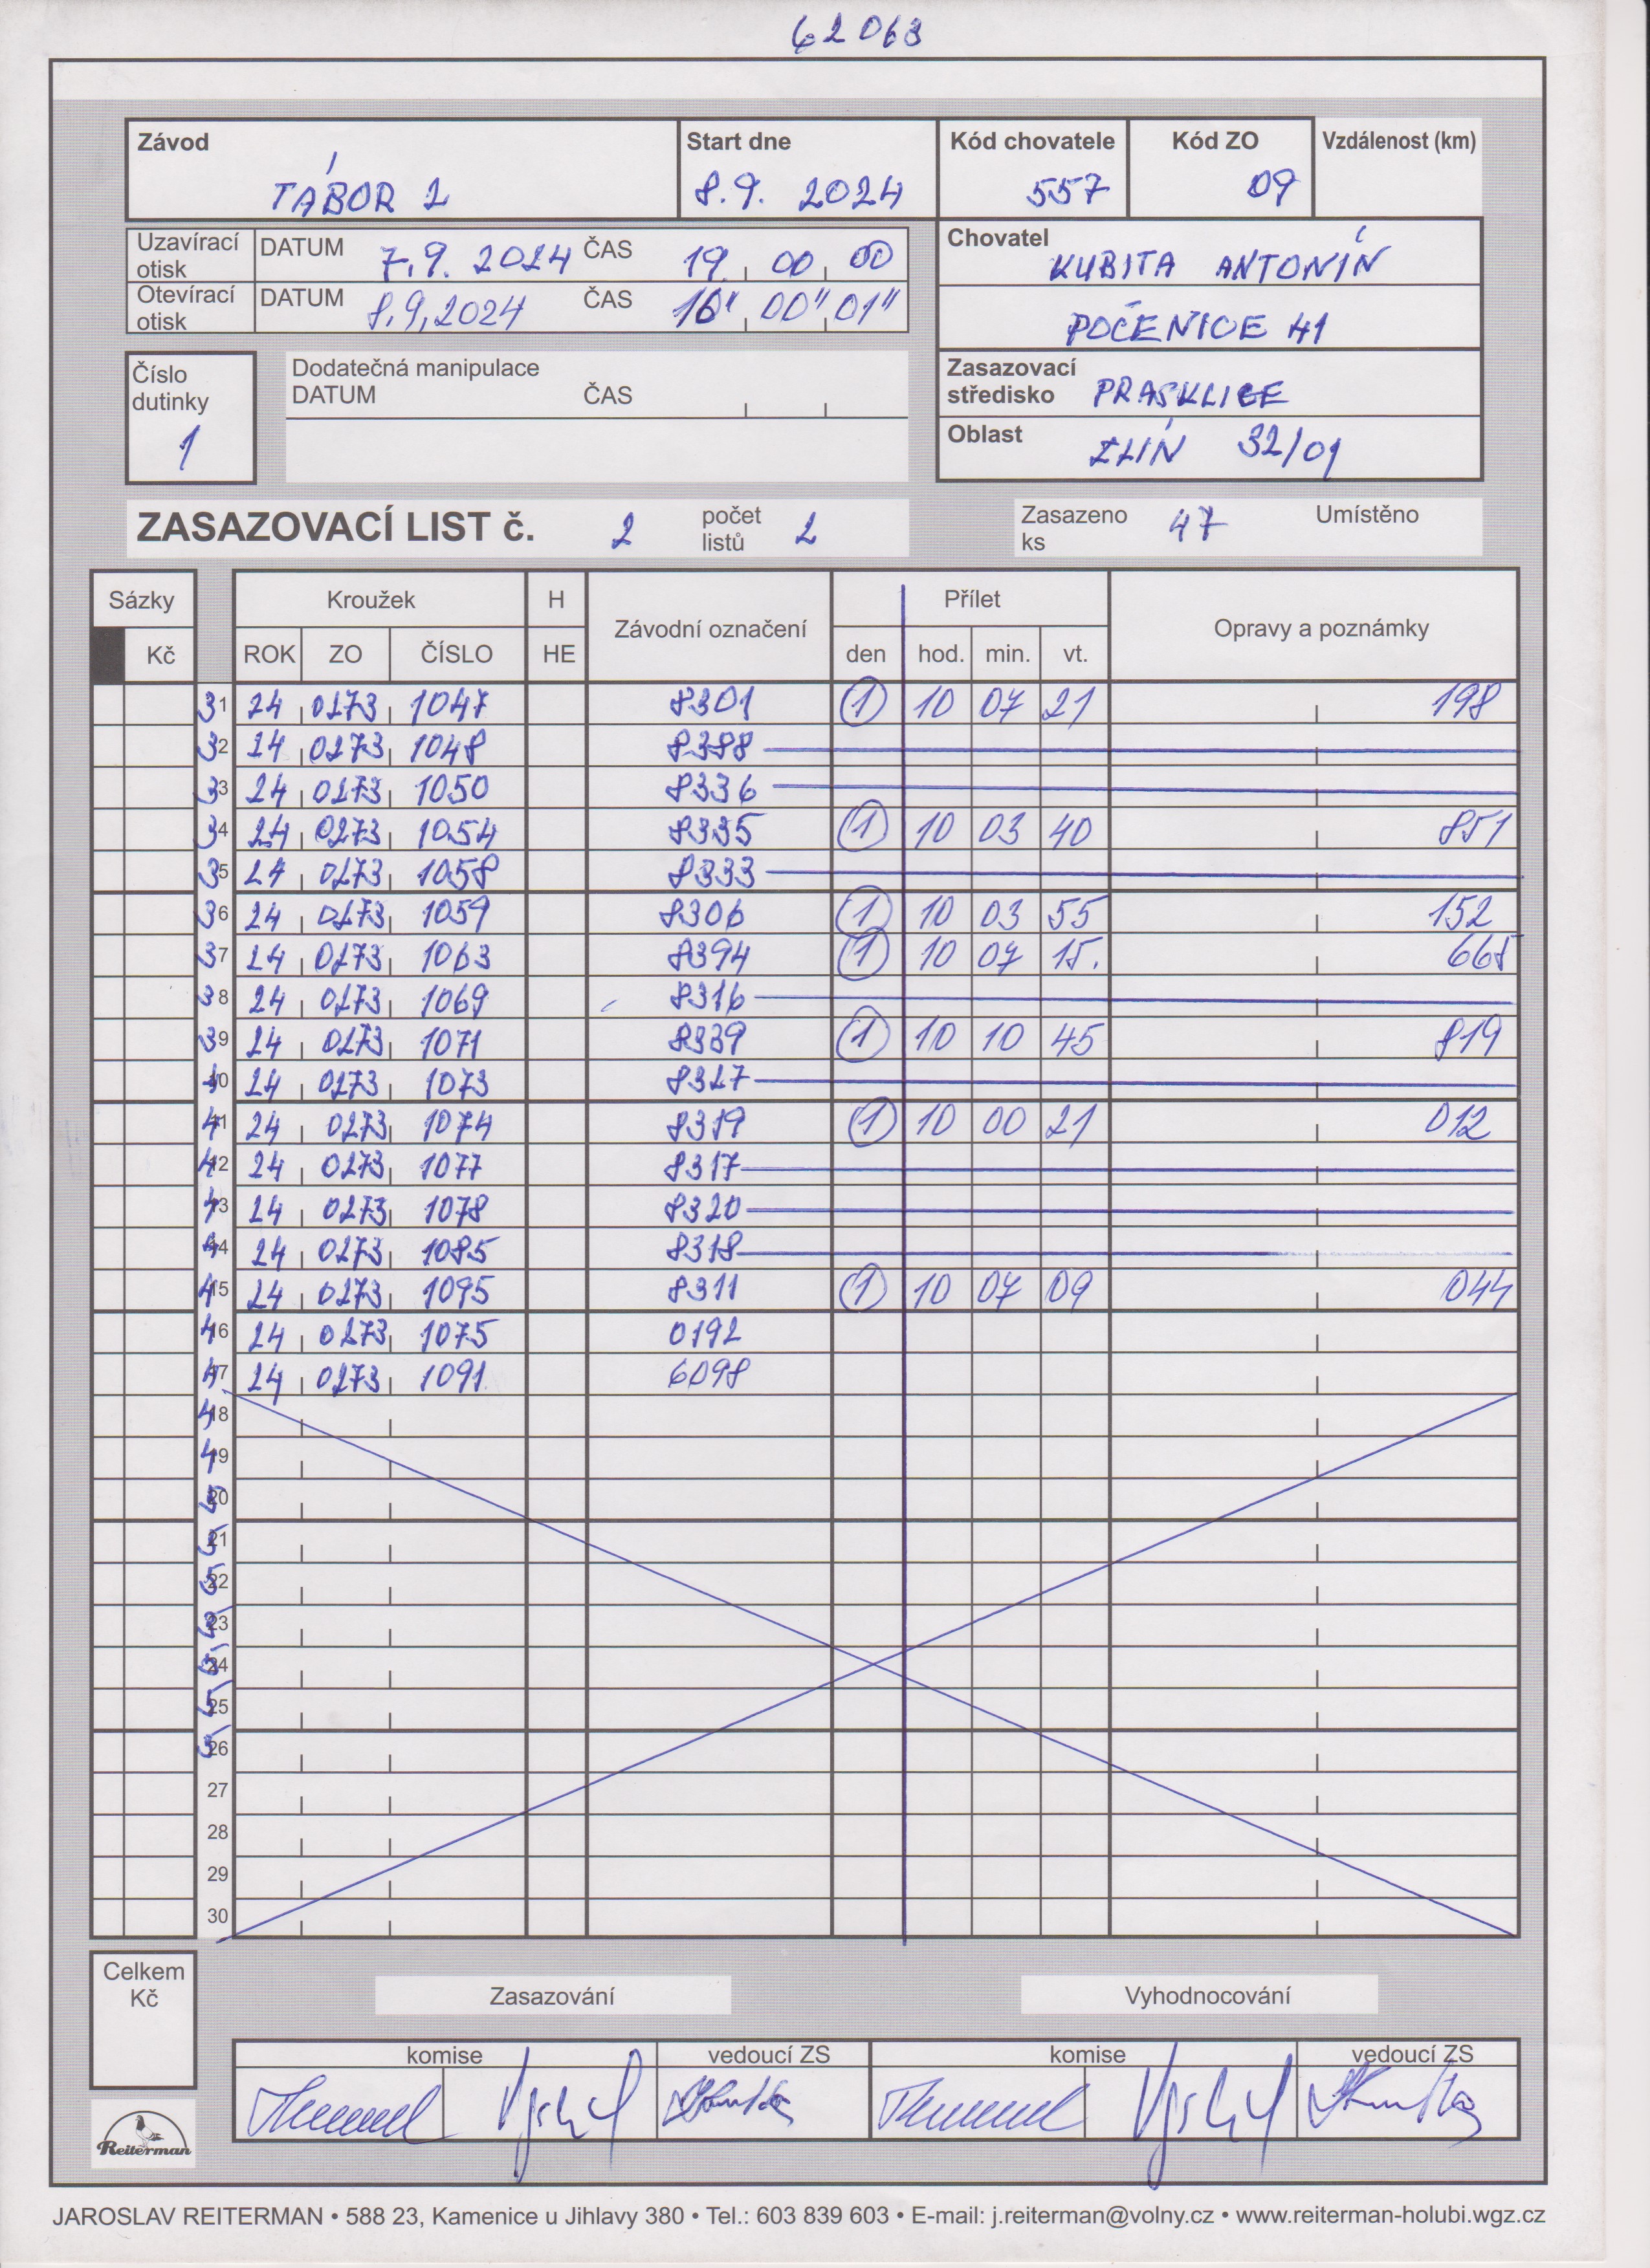 62063
Závod
TÁBOR 2
Start dne
8.9. 2024
Kód chovatele
557
Kód ZO
09
Vzdálenost (km)
Uzavírací otisk DATUM 7.9. 2024 ČAS 19 00 00
Otevírací otisk DATUM 8.9.2024 ČAS 16" 00" 01"
Chovatel KUBITA ANTONÍN
POČENICE 41
Číslo dutinky
1
Dodatečná manipulace
DATUM ČAS
Zasazovací středisko PRASKLICE
Oblast ZLÍN 32/01
ZASAZOVACÍ LIST č. 2 počet listů 2
Zasazeno ks 47 Umístěno
Sázky Kroužek H Závodní označení Přílet Opravy a poznámky
Kč ROK ZO ČÍSLO HE den hod. min. vt.
31 24 0273 1047 8301 1 10 07 21 198
32 24 0273 1048 8388
33 24 0273 1050 8336
34 24 0273 1054 8335 1 10 03 40 851
35 24 0273 1058 8333
36 24 0273 1059 8306 1 10 03 55 152
37 24 0273 1063 8394 1 10 07 15. 665
38 24 0273 1069 8316
39 24 0273 1071 8339 1 10 10 45 819
40 24 0273 1073 8327
41 24 0273 1074 8319 1 10 00 21 012
42 24 0273 1077 8317
43 24 0273 1078 8320
44 24 0273 1085 8318
45 24 0273 1095 8311 1 10 07 09 044
46 24 0273 1075 0192
47 24 0273 1091 6098
48
49
50
51
52
53
54
55
56
27
28
29
30
Celkem Kč
Zasazování
Vyhodnocování
komise vedoucí ZS komise vedoucí ZS
Reiterman
JAROSLAV REITERMAN • 588 23, Kamenice u Jihlavy 380 • Tel.: 603 839 603 • E-mail: j.reiterman@volny.cz • www.reiterman-holubi.wgz.cz